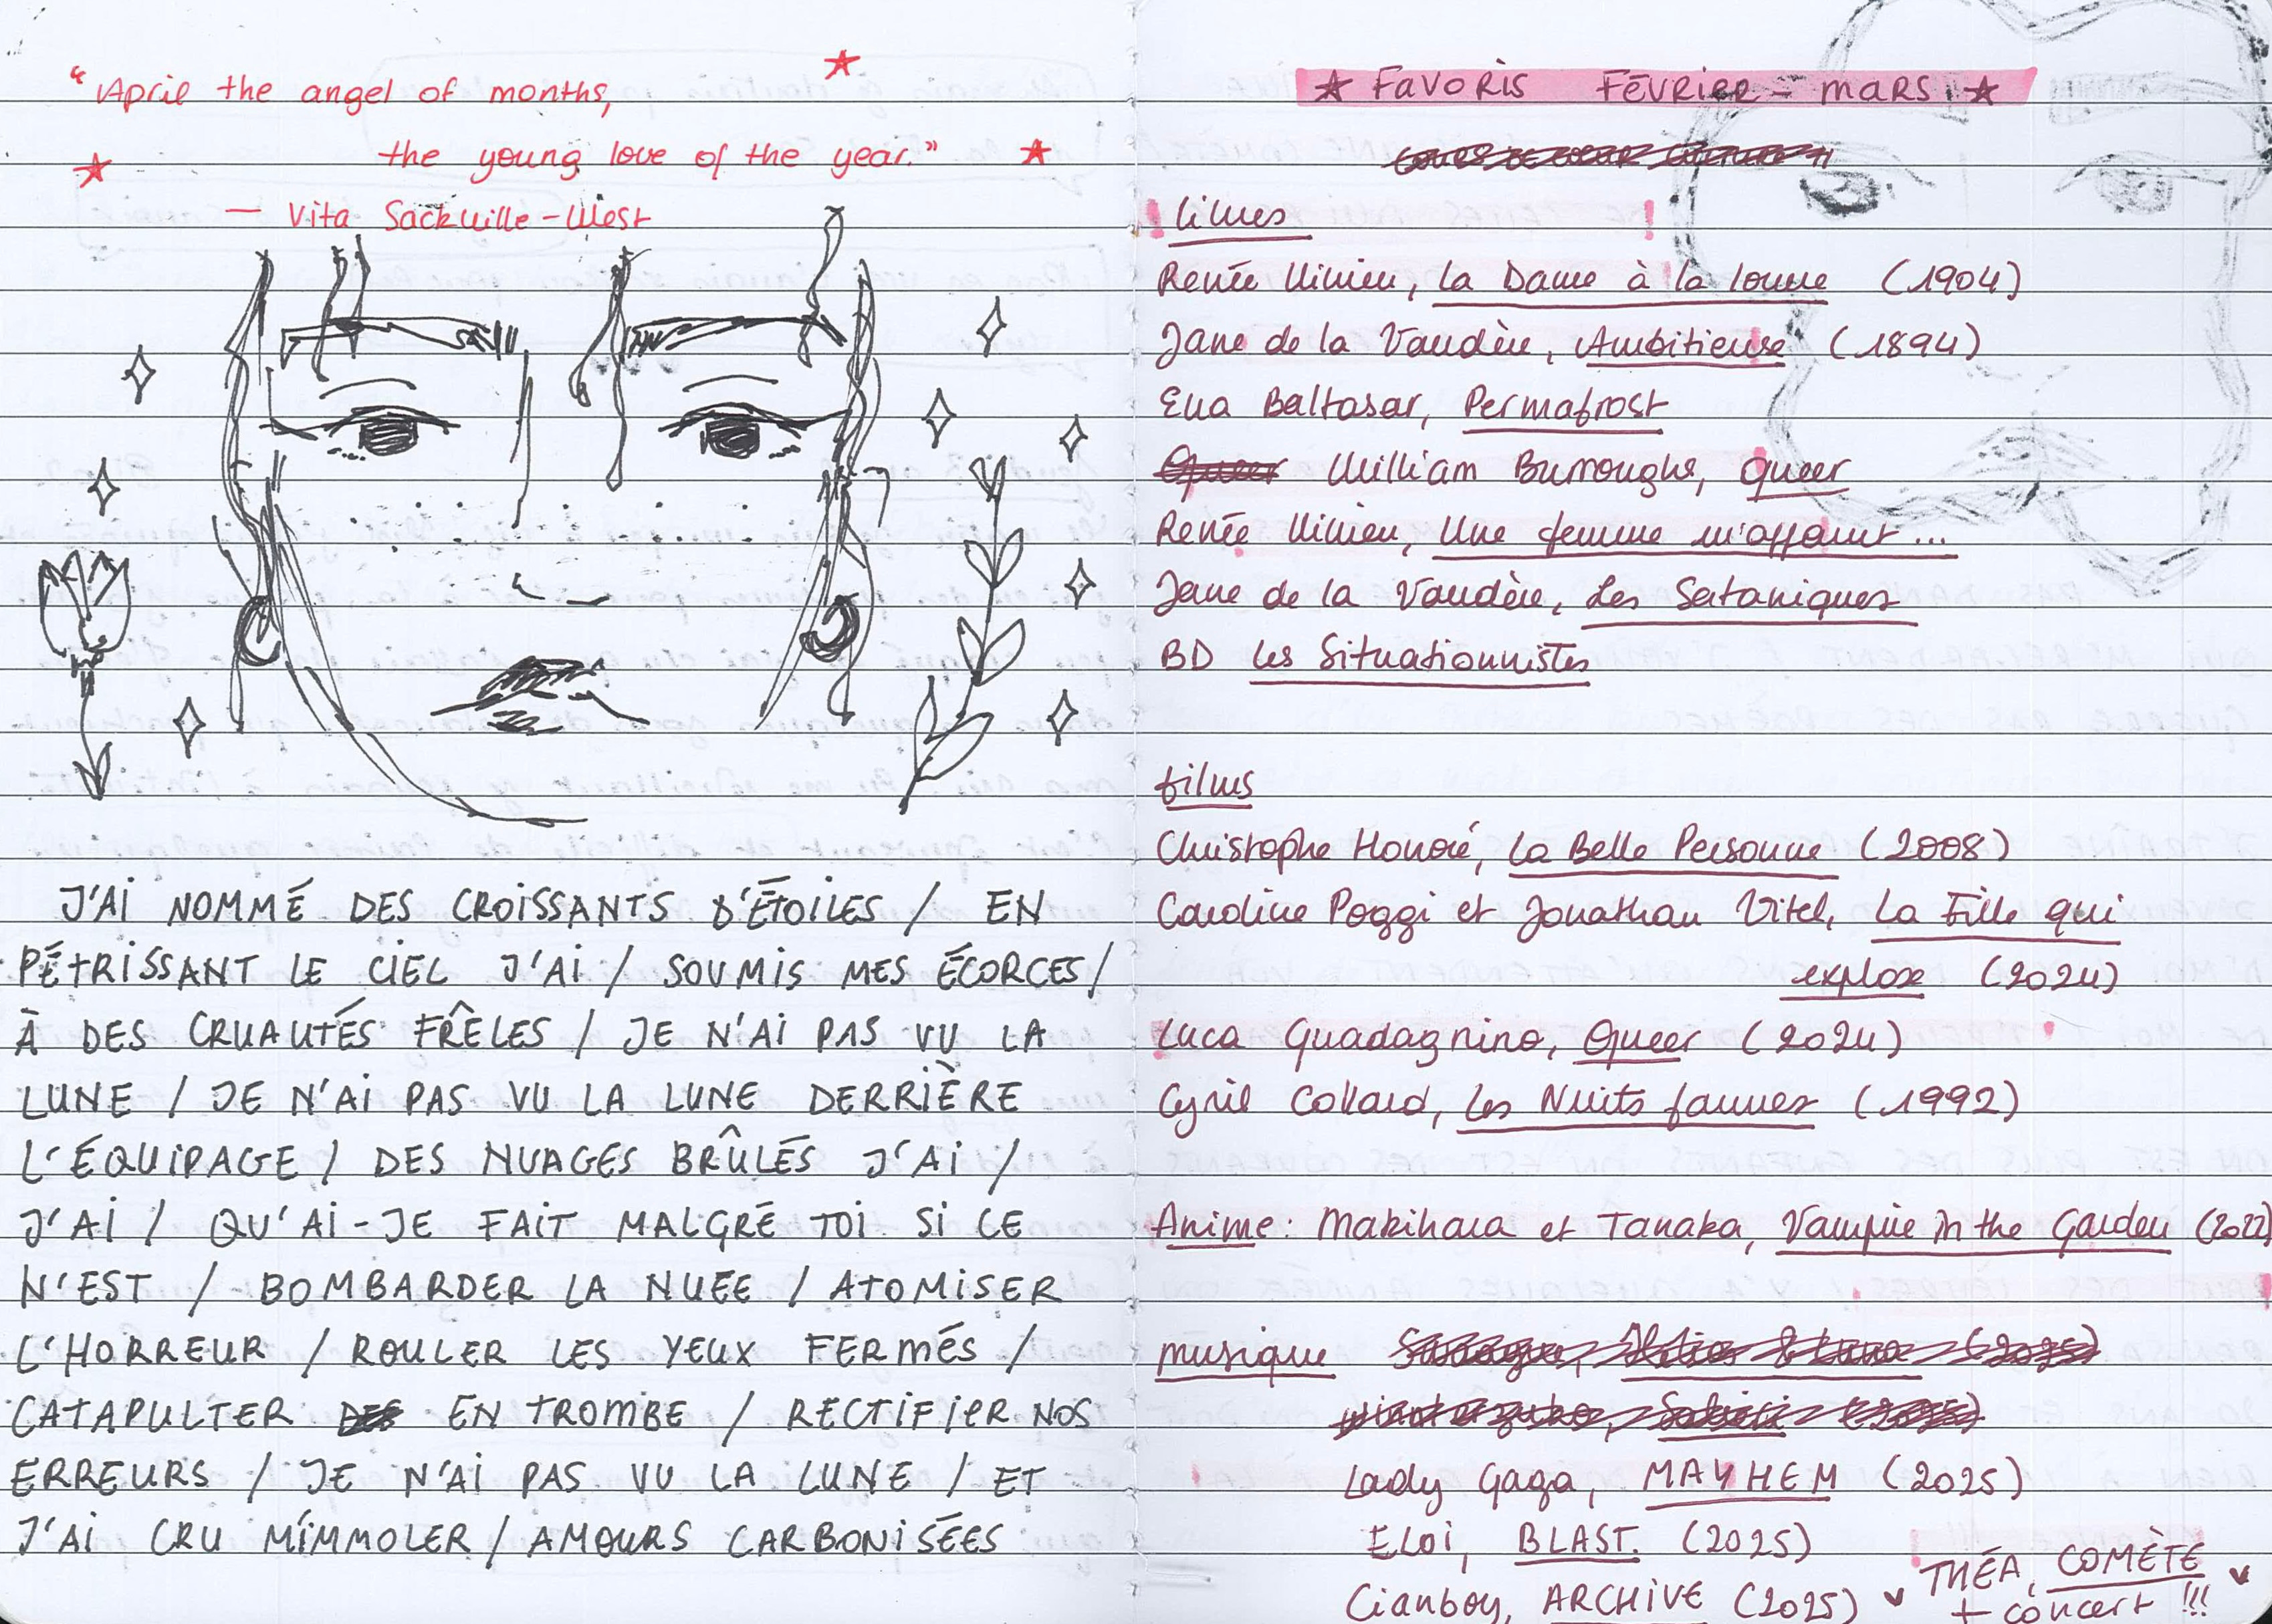 "April the angel of months,
the young love of the year."
— Vita Sackville-West
J'AI NOMMÉ DES CROISSANTS D'ÉTOILES / EN
PÉTRISSANT LE CIEL J'AI / SOUMIS MES ÉCORCES /
À DES CRUAUTÉS FRÊLES / JE N'AI PAS VU LA
LUNE / JE N'AI PAS VU LA LUNE DERRIÈRE
L'ÉQUIPAGE / DES NUAGES BRÛLÉS J'AI /
J'AI / QU'AI-JE FAIT MALGRÉ TOI SI CE
N'EST / BOMBARDER LA NUÉE / ATOMISER
L'HORREUR / ROULER LES YEUX FERMÉS /
CATAPULTER EN TROMBE / RECTIFIER NOS
ERREURS / JE N'AI PAS VU LA LUNE / ET
J'AI CRU M'IMMOLER / AMOURS CARBONISÉES
★ FAVORIS FÉVRIER - MARS ★
livres
Renée Vivien, La Dame à la louve (1904)
Jane de la Vaudère, Ambitieuse (1894)
Eva Baltasar, Permafrost
Queer William Burroughs, Queer
Renée Vivien, Une femme m'apparut...
Jane de la Vaudère, Les Sataniques
BD Les Situationnistes
films
Christophe Honoré, La Belle Personne (2008)
Caroline Poggi et Jonathan Vitel, La Fille qui
explose (2024)
Luca Guadagnino, Queer (2024)
Cyril Collard, Les Nuits fauves (1992)
Anime: Makihara et Tanaka, Vampire in the Garden (2022)
musique
Lady Gaga, MAYHEM (2025)
Eloi, BLAST. (2025)
Cianboy, ARCHIVE (2025)
THÉA, COMÈTE
+ concert !!!